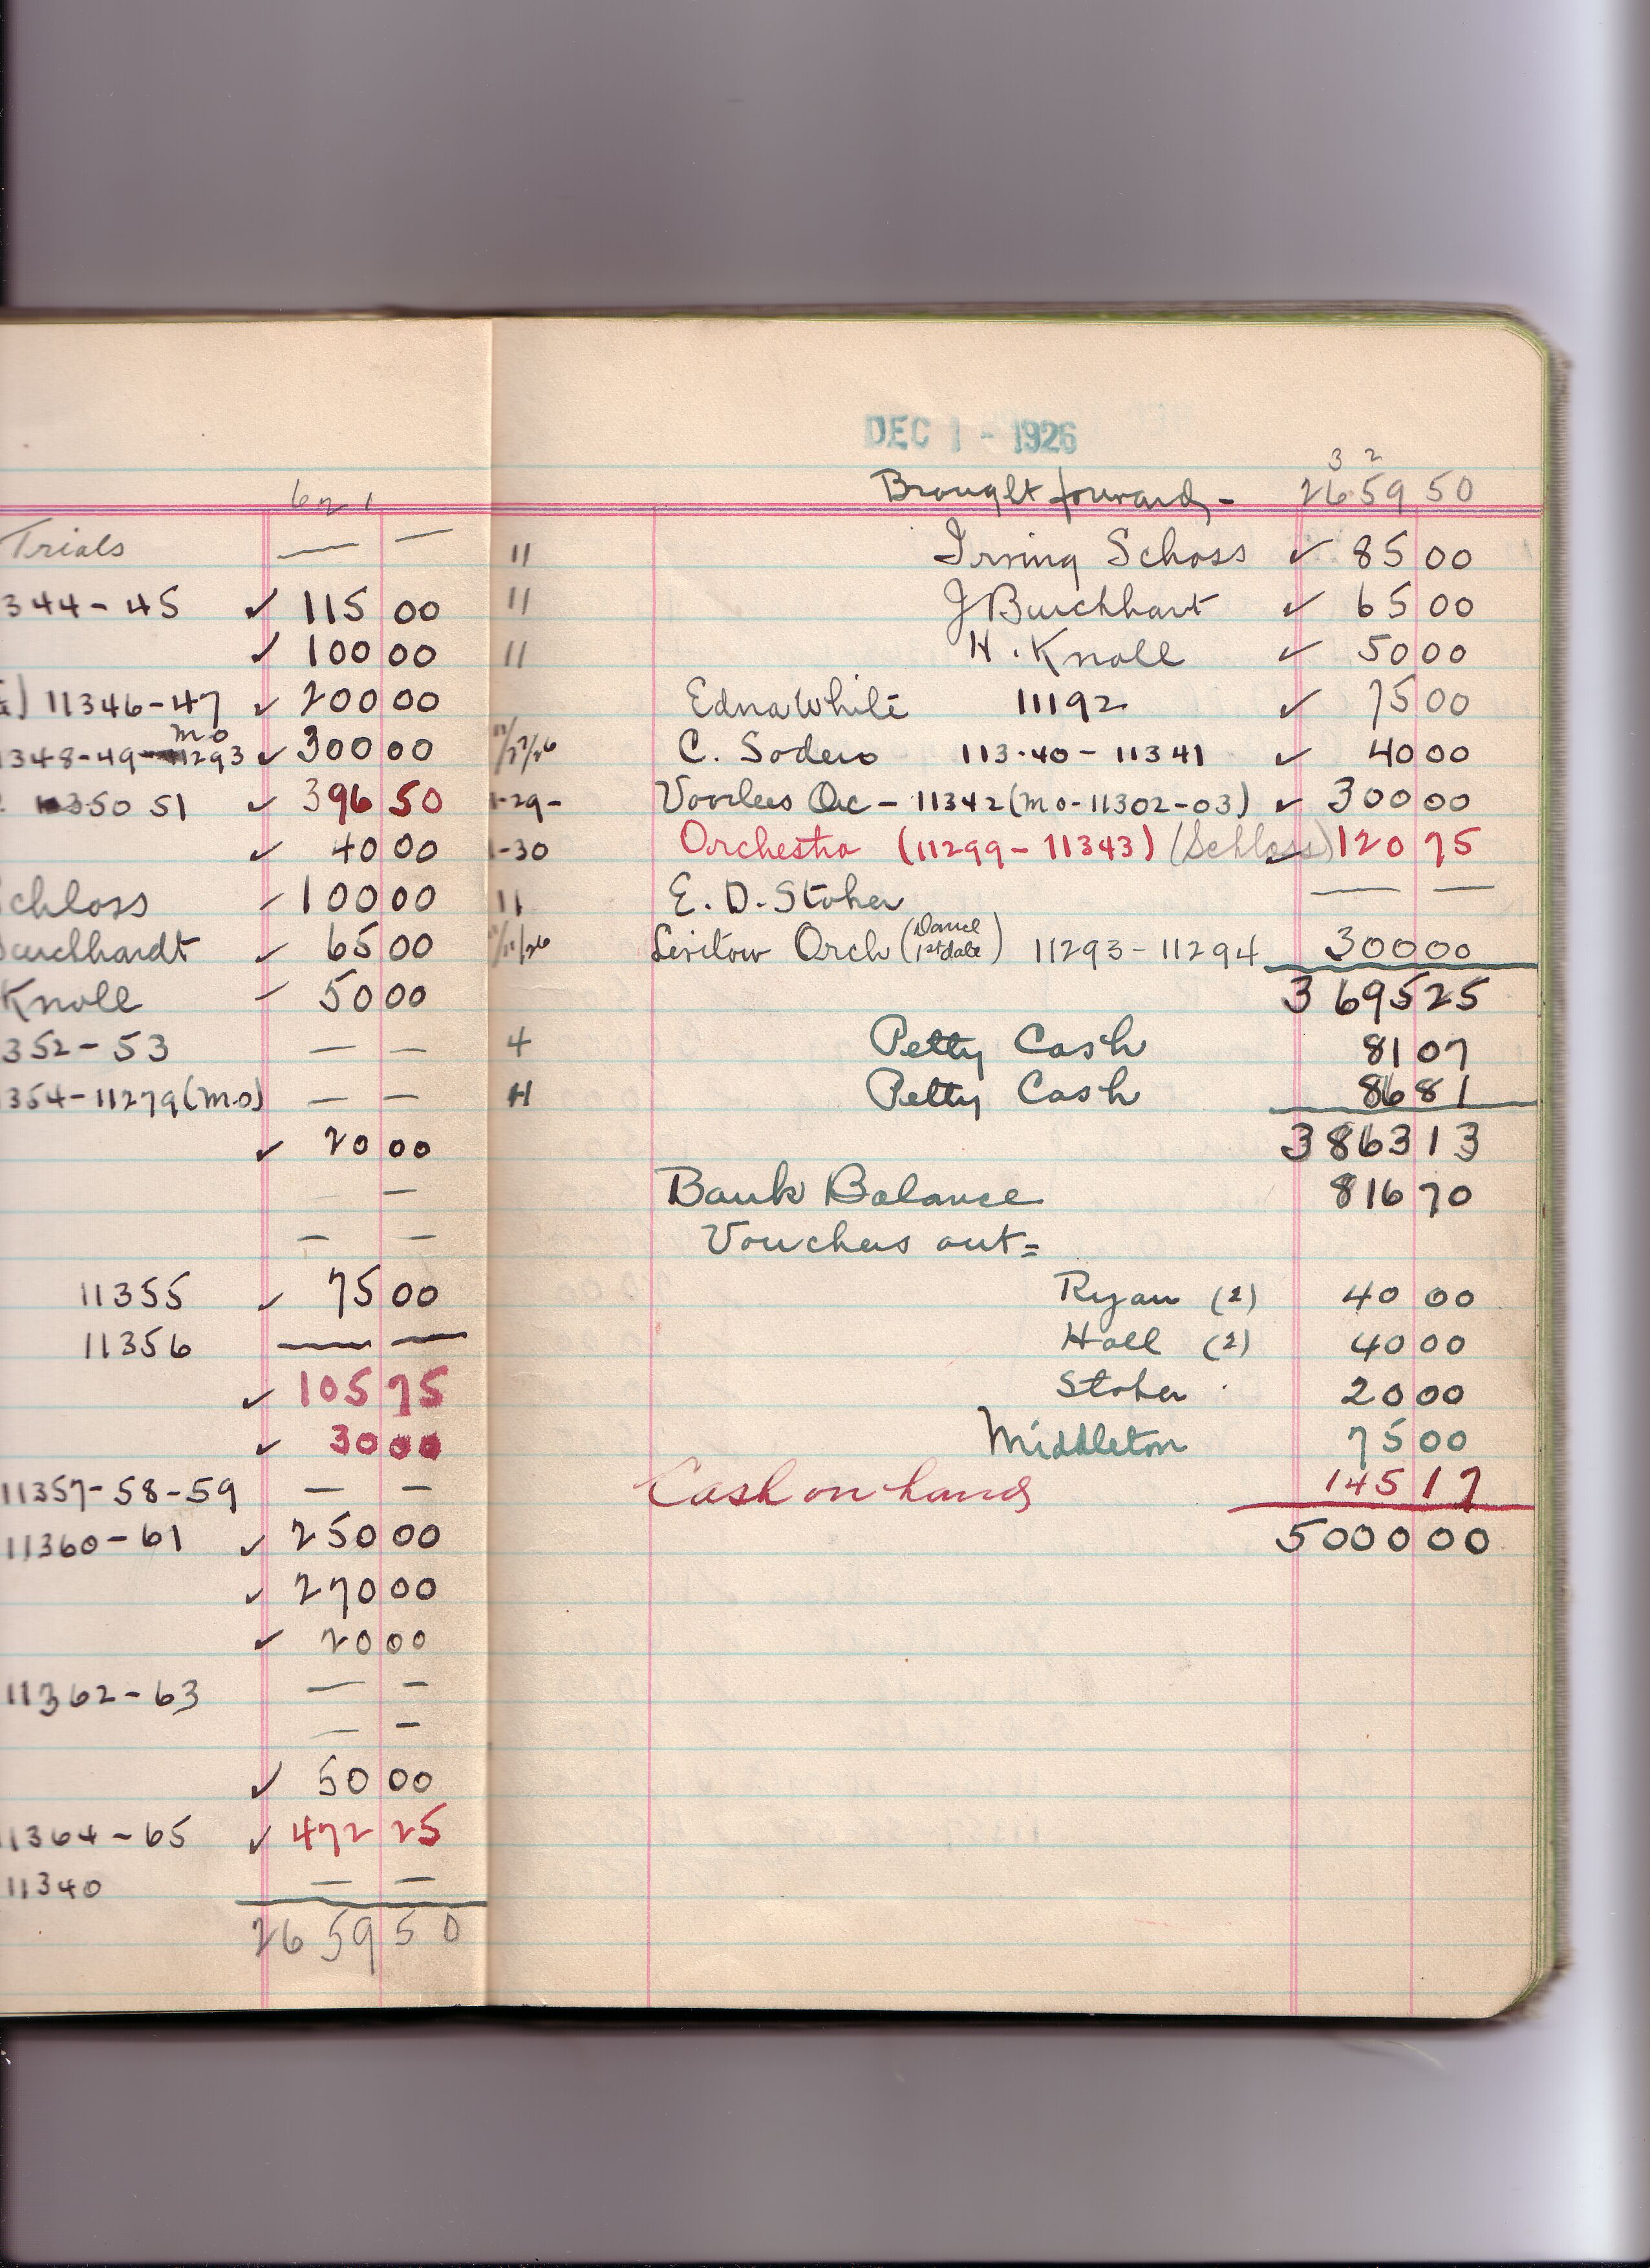 6 2 1
Trials — —
344-45 ✓ 115 00
✓ 100 00
11346-47 ✓ 200 00
mo
348-49- 11293 ✓ 300 00
11350 51 ✓ 396 50
✓ 40 00
chloss ✓ 100 00
urchhardt ✓ 65 00
Knoll ✓ 50 00
352-53 — —
354-11279 (mo) — —
✓ 20 00
—
— —
11355 ✓ 75 00
11356 — —
✓ 105 75
✓ 30 00
11357-58-59 — —
11360-61 ✓ 250 00
✓ 270 00
✓ 20 00
11362-63 — —
— —
✓ 50 00
11364-65 ✓ 472 25
11340 — —
2659 50
DEC 1 - 1926
3 2
Brought forward - 2659 50
11 Irving Schoss ✓ 85 00
11 J Burchhart ✓ 65 00
11 H. Knoll ✓ 50 00
Edna White 11192 ✓ 75 00
11/27/26 C. Sodero 113-40-11341 ✓ 40 00
-29- Voorlees Orc - 11342 (mo-11302-03) ✓ 300 00
-30 Orchestra (11299-11343) (Schloss) ✓ 120 75
11 E. D. Stoher — —
Levitow Orch (Dance 1st date) 11293-11294 300 00
3695 25
4 Petty Cash 81 07
11 Petty Cash 86 81
3863 13
Bank Balance 816 70
Vouchers out =
Ryan (2) 40 00
Hall (2) 40 00
Stoher 20 00
Middleton 75 00
Cash on hand 145 17
5000 00